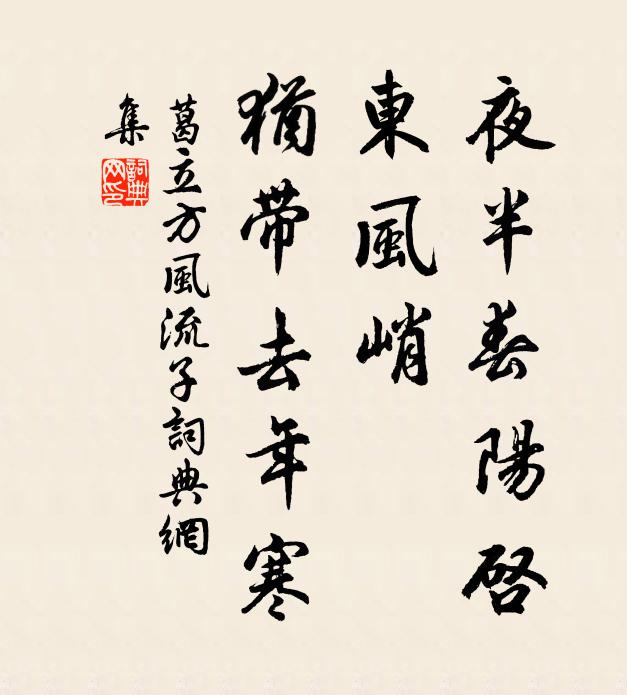 夜半春陽啓
東風峭
猶帶去年寒
葛立方風流子詞典網
集
詞典
网印